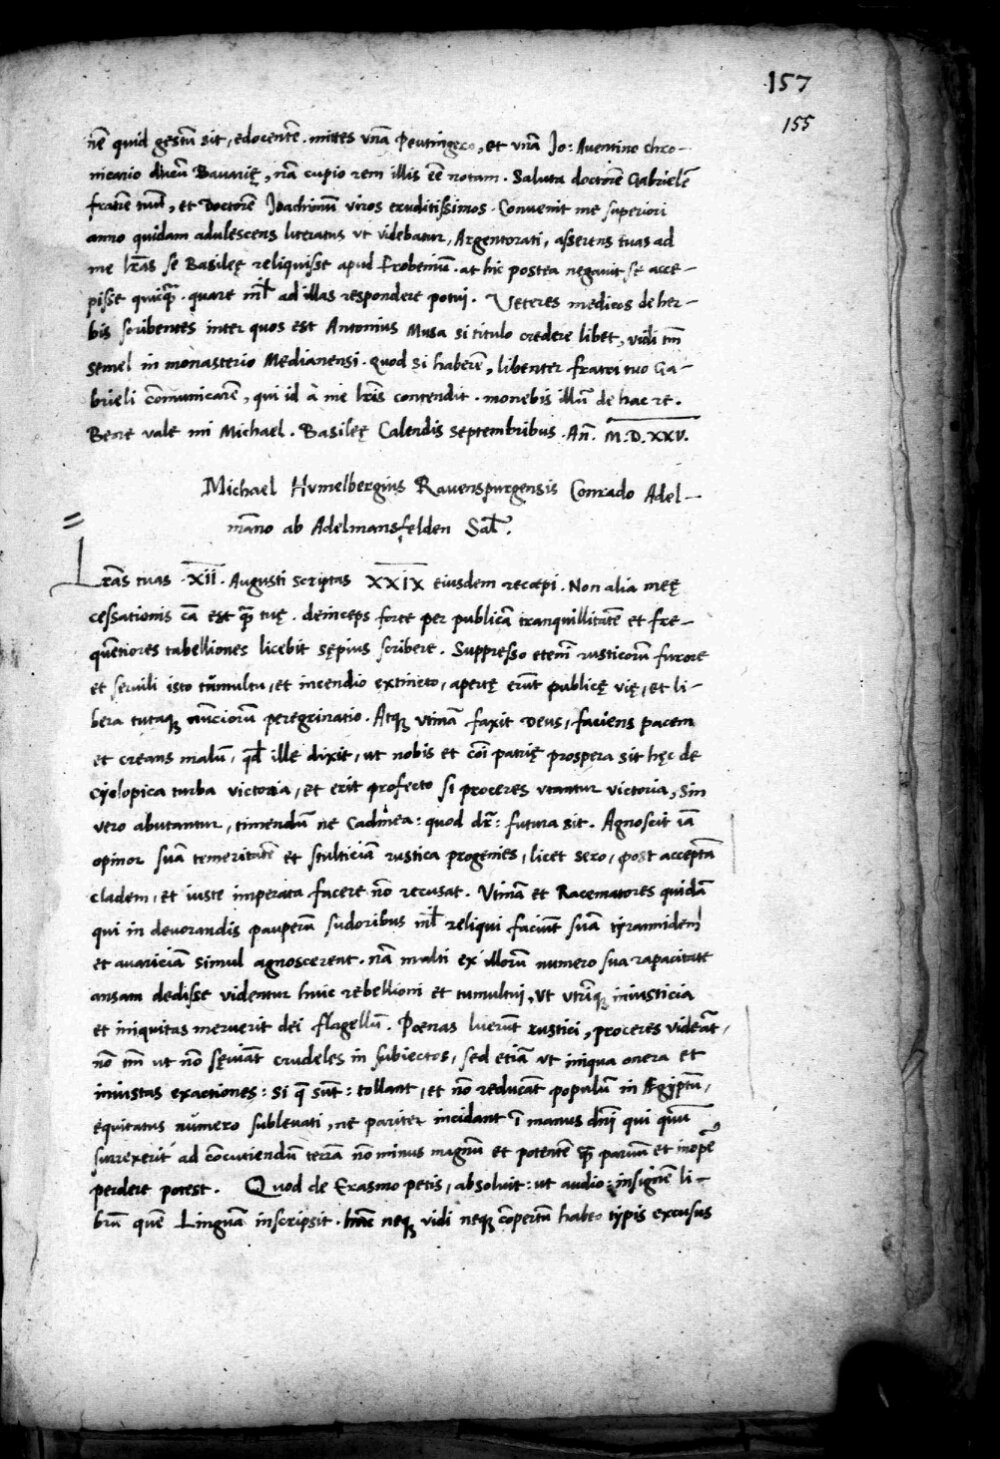 157
155
nē quid gestū sit, edocentē. mittes vnā Peutingero, et vnā Jo: Auentino chro-
nicario ducū Bauarię, nā cupio rem illis eē notam. Saluta doctorē Gabrielē
fratrē tuū, et doctorē Joachimū viros eruditissimos. Conuenit me superiori
anno quidam adulescens literatus vt videbatur, Argentorati, asserens tuas ad
me lr̄as se Basileę reliquisse apud Frobeniū. at hic postea negauit se acce-
pisse quicq̄. quare nil̄ ad illas respondere potui. Veteres medicos de her-
bis scribentes inter quos est Antonius Musa si titulo credere libet, vidi tm̄
semel in monasterio Medianensi. quod si haberē, libenter fratri tuo Ga-
brieli cōmunicarē, qui id à me lr̄is contendit. monebis illū de hac re.
Bene vale mi Michael. Basileę Calendis septembribus. An̄. M.D.XXV.
Michael Humelbergius Rauenspurgensis Conrado Adel-
māno ab Adelmansfelden Sal̄.
Lr̄as tuas .XII. Augusti scriptas XXIX eiusdem recępi. Non alia meę
cessationis cā est q̄ tuę. deinceps forte per publicā tranquillitatē et fre-
quētiores tabelliones licebit sępius scribere. Suppresso etenī rusticorū furore
et seruili isto tumultu, et incendio extincto, apertę erūt publicę vię, et li-
bera tutaq; nūciorū peregrinatio. Atq; vtinā faxit Deus, faciens pacem
et creans malū, qd̄ ille dixit, ut nobis et cōi patrię prospera sit hęc de
cyclopica turba victoria, et erit profecto si proceres vtantur victoria, Sin
vero abutantur, timendū ne Cadmea: quod dr̄: futura sit. Agnoscit iā
opinor suā temeritatē et stulticiā rustica progenies, licet sero, post acceptā
cladem, et iuste imperata facere nō recusat. Vtinā et Racematores quidā
qui in deuorandis pauperū sudoribus nil̄ reliqui faciūt suā tyrannidem
et auariciā simul agnoscerent. nā multi ex illorū numero sua rapacitate
ansam dedisse videntur huic rebellioni et tumultui, vt vtriq; iniusticia
et iniquitas meruerit dei flagellū. Pœnas luerūt rustici, proceres videāt,
nō tm̄ ut nō sęuiāt crudeles in subiectos, sed etiā vt iniqua onera et
iniustas exactiones: si q̄ sūt: tollant, et nō reducāt populū in Ægyptū,
equitatus numero subleuati, ne pariter incidant ī manus dn̄i qui quū
surrexerit ad cōcutiendū terrā nō minus magnū et potentē q̄ paruū et inopē
perdere potest. Quod de Erasmo petis, absoluit: ut audio: insignē li-
brū quē Linguā inscripsit. hūc neq; vidi neq; cōpertū habeo typis excusus